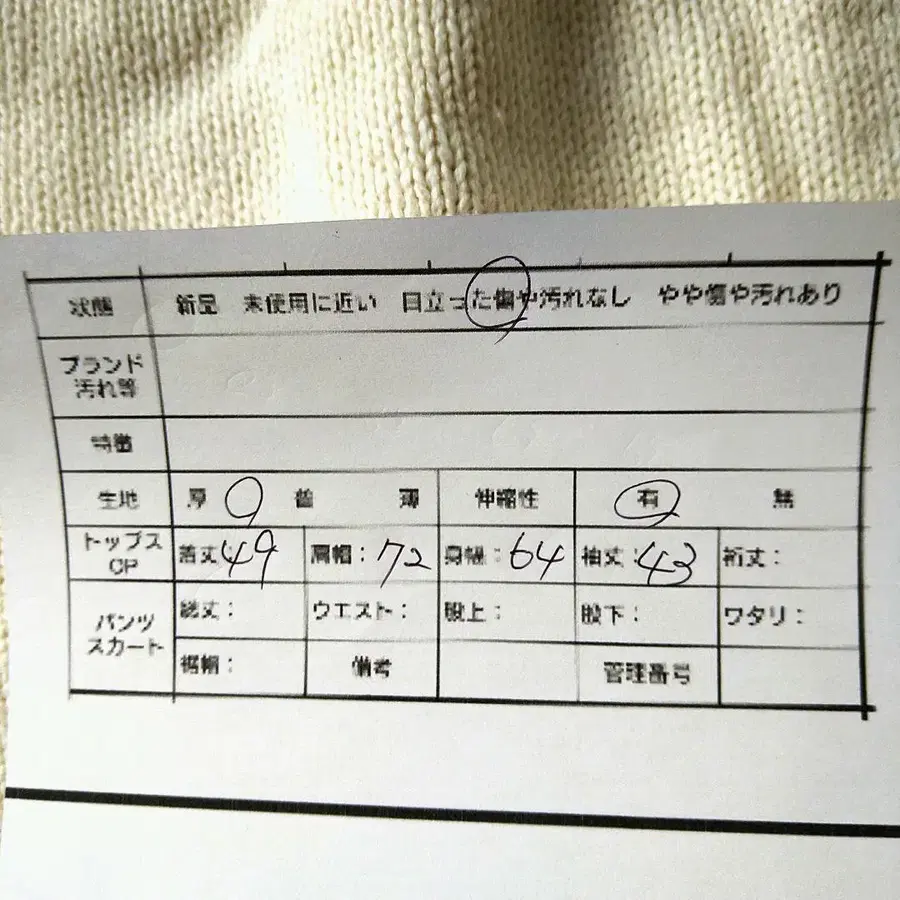 状態 新品 未使用に近い 目立った傷や汚れなし やや傷や汚れあり
ブランド
汚れ等
特徴
生地 厚 普 薄 伸縮性 有 無
トップス
OP
着丈49 肩幅：72 身幅：64 袖丈：43 裄丈：
パンツ
スカート
総丈： ウエスト： 股上： 股下： ワタリ：
裾幅： 備考 管理番号